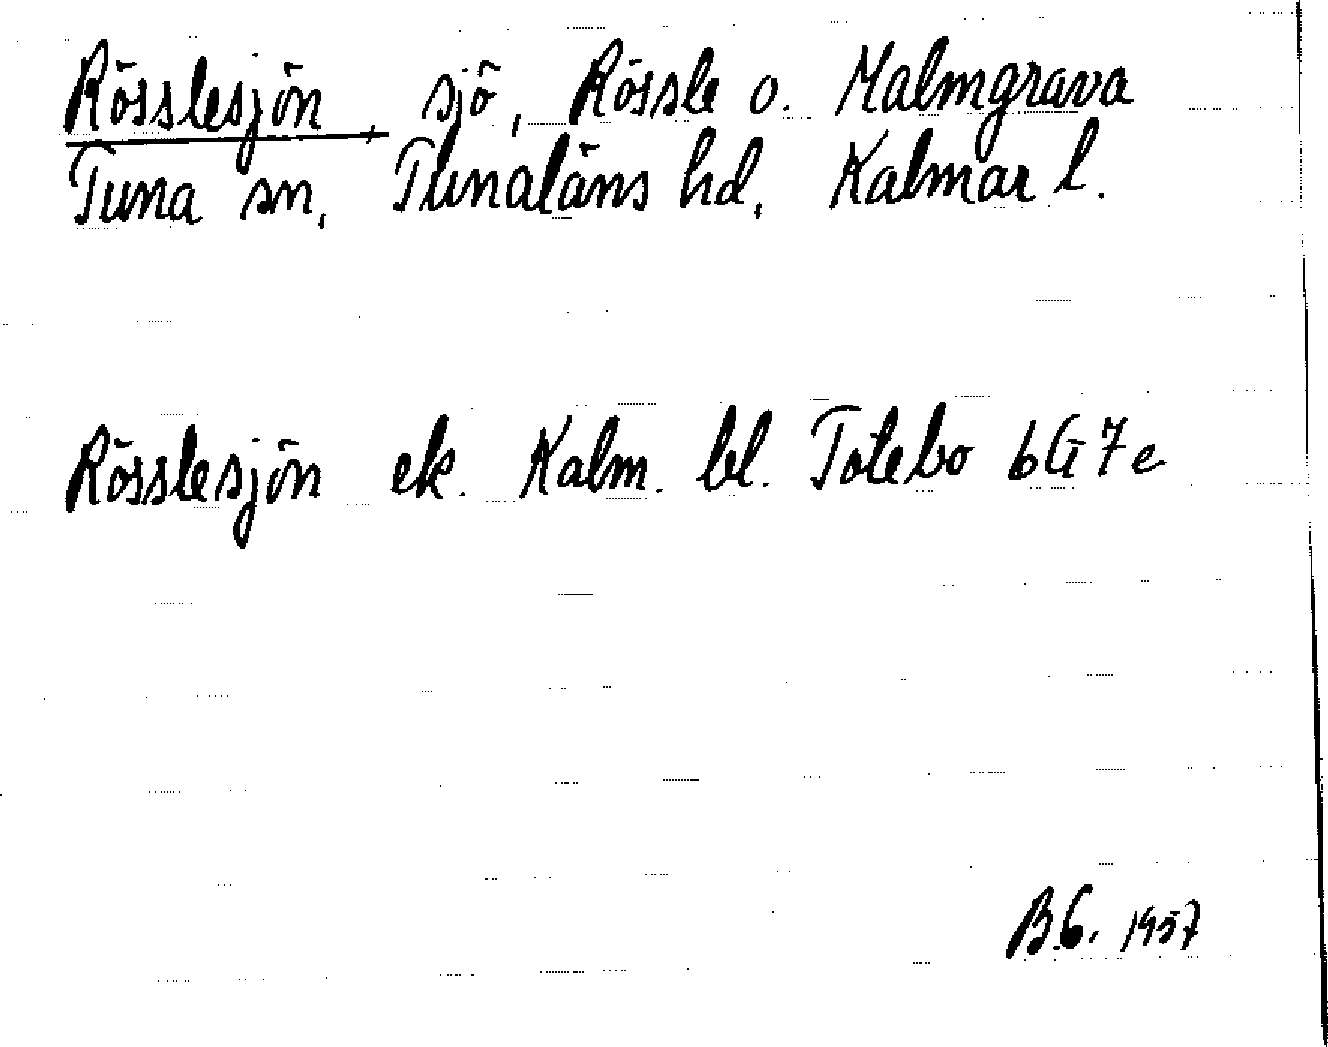 Rösslesjön, sjö, Rössle o. Malmgrava
Tuna sn, Tunaläns hd, Kalmar l.
Rösslesjön ek. Kalm. bl. Totebo 6G7e
B.G. 1957